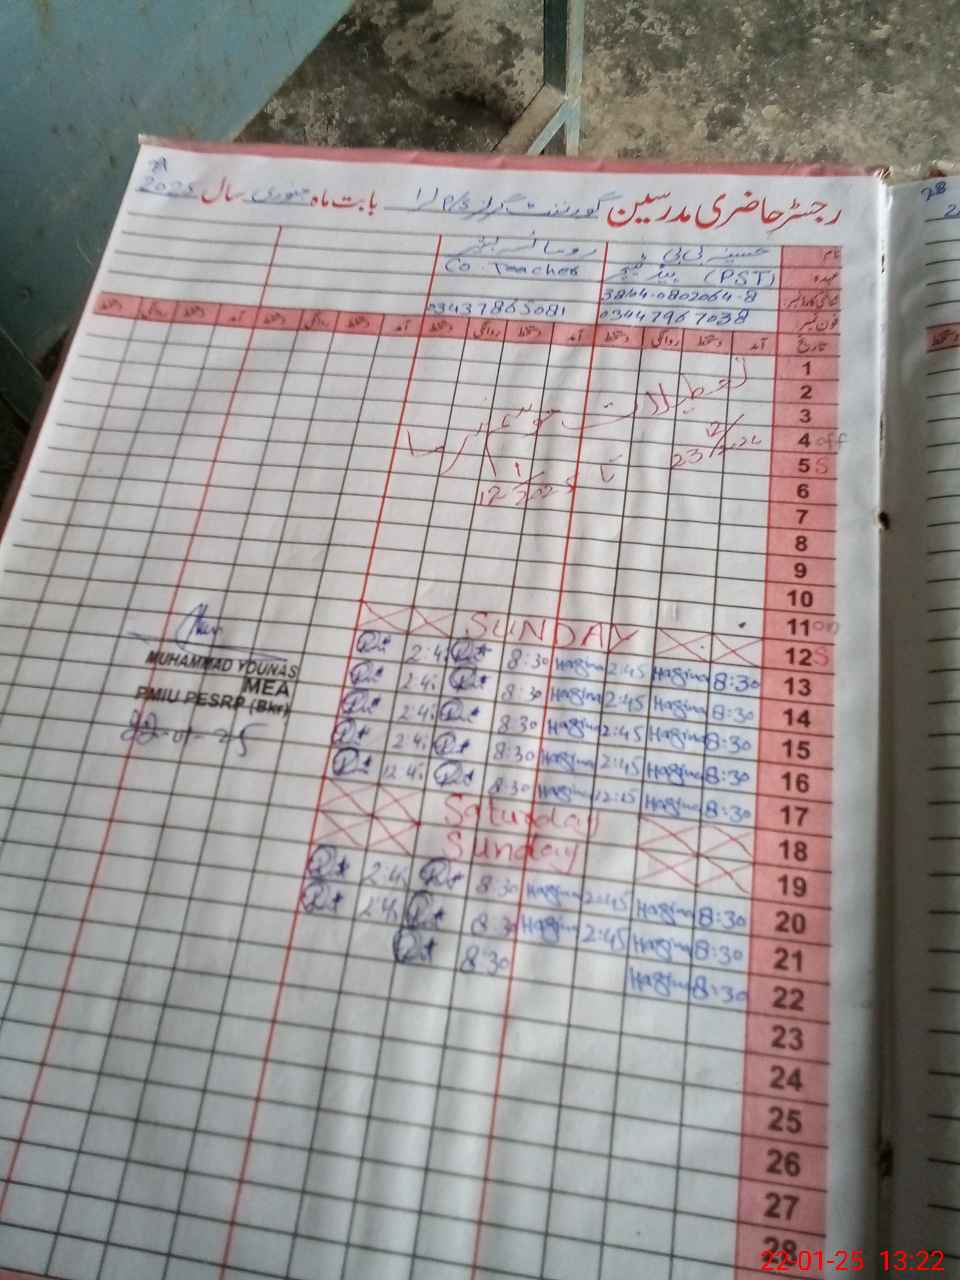 رجسٹر حاضری مدرسین گورنمنٹ گرلز بابت ماہ جنوری سال 2025
نام
عہدہ (PST) Co. Teacher
شناختی کارڈ نمبر 38404-0802064-8
فون نمبر 03447967038 03437865081
تاریخ آمد دستخط روانگی دستخط آمد دستخط روانگی دستخط آمد دستخط روانگی دستخط آمد دستخط روانگی دستخط
1
2 تعطیلات موسم سرما
3
4 off
5 S 23/12/2024 تا 12/1/2025
6
7
8
9
10
11 on
12 S SUNDAY
13 8:30 Hasina 2:45 Hasina 8:30 2:4
14 8:30 Hasina 2:45 Hasina 8:30 2:4
15 8:30 Hasina 2:45 Hasina 8:30 2:4
16 8:30 Hasina 2:45 Hasina 8:30 2:4
17 8:30 Hasina 12:15 Hasina 8:30 12:4
18 Saturday
19 Sunday
20 8:30 Hasina 2:45 Hasina 8:30 2:4
21 8:30 Hasina 2:45 Hasina 8:30 2:4
22 8:30 Hasina 8:30
23
24
25
26
27
28
MUHAMMAD YOUNAS
MEA
PMIU PESRP (Bkr)
22-01-25
22-01-25 13:22